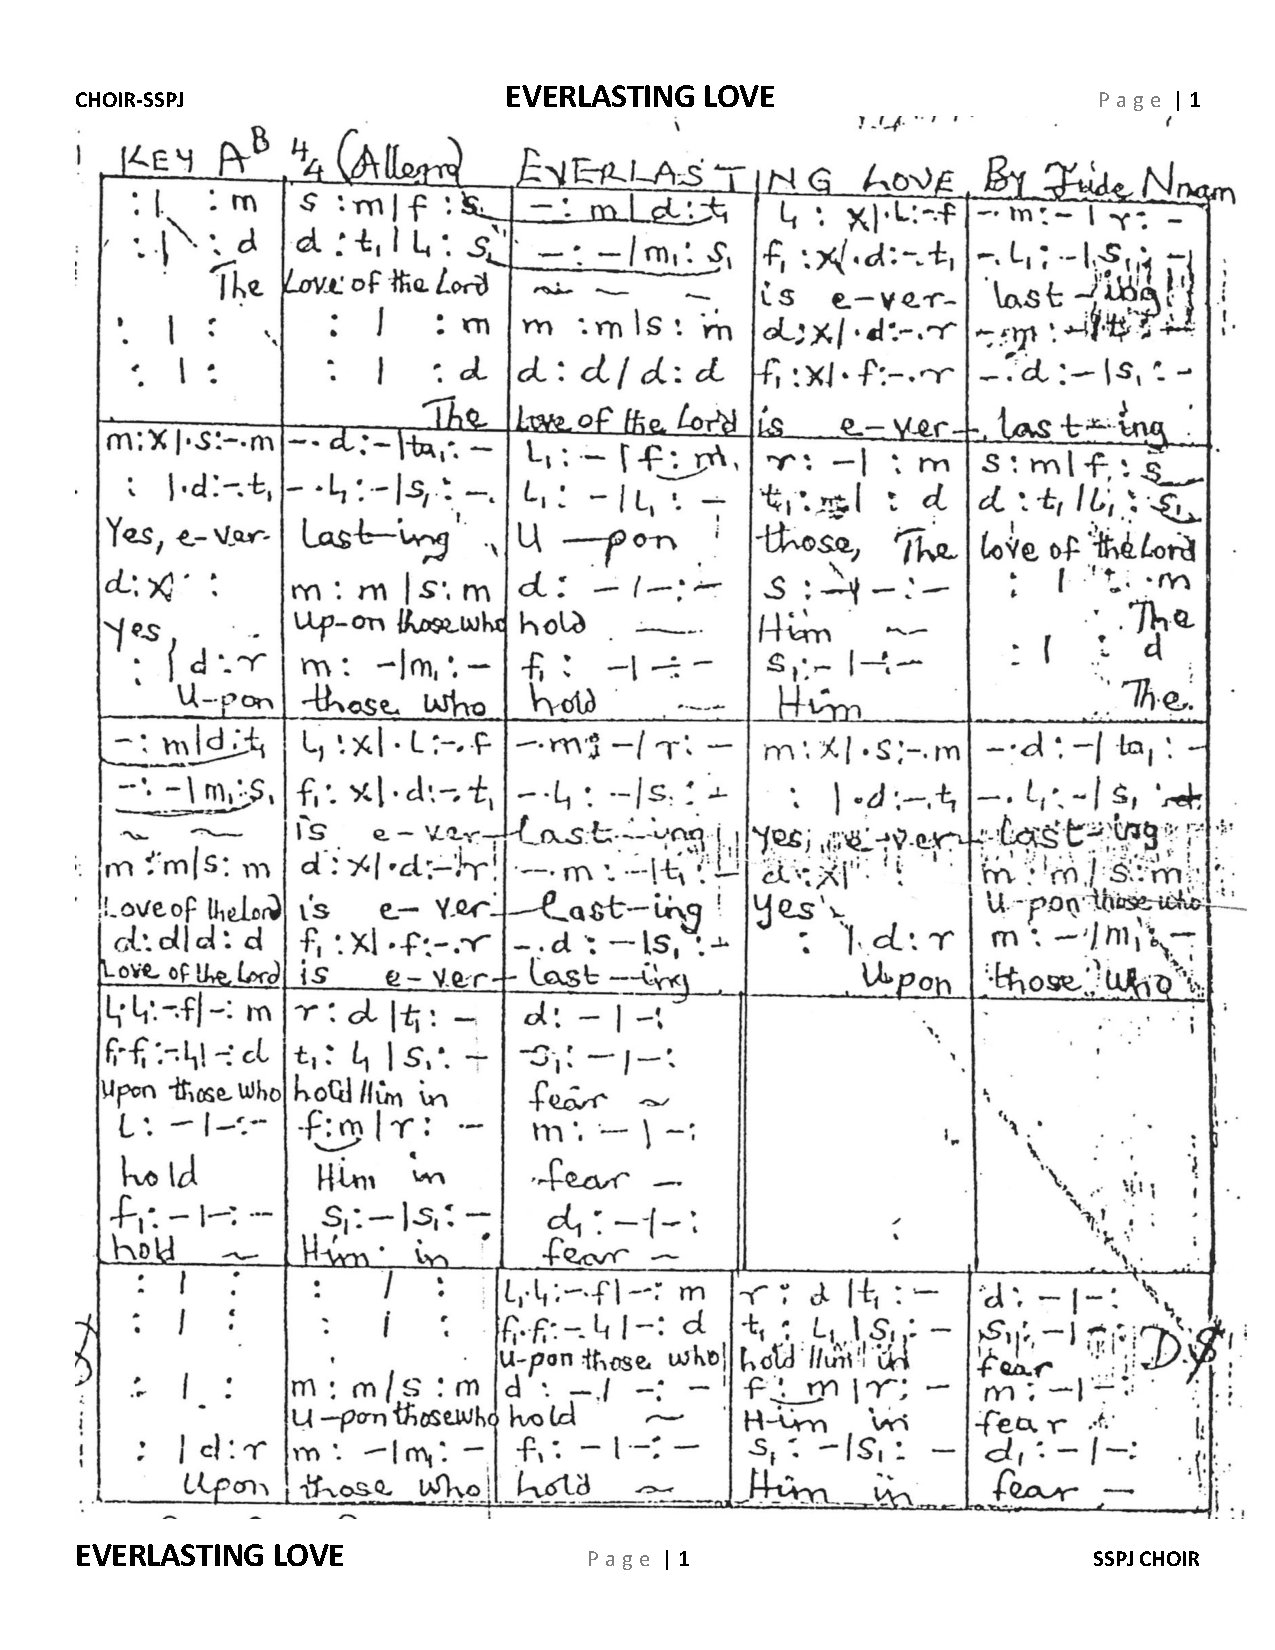 CHOIR-SSPJ EVERLASTING LOVE Page | 1
KEY Ab 4/4 (Allegro) EVERLASTING LOVE By Jude Nnam
: | : m s : m | f : s - : m | d : t₁ l₁ : x | . l : - . f - . m : - | r : -
: | : d d : t₁ | l₁ : s₁ - : - | m₁ : s₁ f₁ : x | . d : - . t₁ - . l₁ : - | s₁ : -
The Love of the Lord ~ ~ ~ is e-ver- last-ing
: | : : | : m m : m | s : m d : x | . d : - . r - . m : - | t₁ : -
: | : : | : d d : d / d : d f₁ : x | . f : - . r - . d : - | s₁ : -
The Love of the Lord is e-ver- last-ing
m : x | . s : - . m - . d : - | ta₁ : - l₁ : - | f : m r : - | : m s : m | f : s
: | . d : - . t₁ - . l₁ : - | s₁ : - . l₁ : - | l₁ : - t₁ : - | : d d : t₁ | l₁ : s₁
Yes, e-ver- last-ing U-pon those, The love of the Lord
d : x : m : m | s : m d : - | - : - s : - | - : - : | : m
yes, up-on those who hold Him The
: | d : r m : - | m₁ : - f₁ : - | - : - s₁ : - | - : - : | : d
U-pon those who hold Him The.
- : m | d : t₁ l₁ : x | . l : - . f - . m : - | r : - m : x | . s : - . m - . d : - | ta₁ : -
- : - | m₁ : s₁ f₁ : x | . d : - . t₁ - . l₁ : - | s₁ : - : | . d : - . t₁ - . l₁ : - | s₁
~ ~ is e-ver- last-ing yes, e-ver- last-ing
m : m | s : m d : x | . d : - . r - . m : - | t₁ : - d : x | m : m / s : m
Love of the Lord is e-ver- last-ing yes u-pon those who
d : d | d : d f₁ : x | . f : - . r - . d : - | s₁ : - : | . d : r m : - / m₁ : -
Love of the Lord is e-ver- last-ing Upon those who
l₁ . l₁ : - . f | - : m r : d | t₁ : - d : - | - :
f₁ . f₁ : - . l₁ | - : d t₁ : l₁ | s₁ : - s₁ : - | - :
upon those who hold Him in fear ~
l : - | - : - f : m | r : - m : - | - :
hold Him in fear -
f₁ : - | - : - s₁ : - | s₁ : - d₁ : - | - :
hold ~ Him in fear ~
: | : : / : l₁ . l₁ : - . f | - : m r : d | t₁ : - d : - | - :
: | : : | : f₁ . f₁ : - . l₁ | - : d t₁ : l₁ | s₁ : - s₁ : - | D.S
u-pon those who hold Him in fear
: | : m : m / s : m d : - / - : - f : m | r : - m : - | - :
u-pon those who hold ~ Him in fear
: | d : r m : - | m₁ : - f₁ : - | - : - s₁ : - | s₁ : - d₁ : - | - :
Upon those who hold ~ Him in fear -
EVERLASTING LOVE Page | 1 SSPJ CHOIR